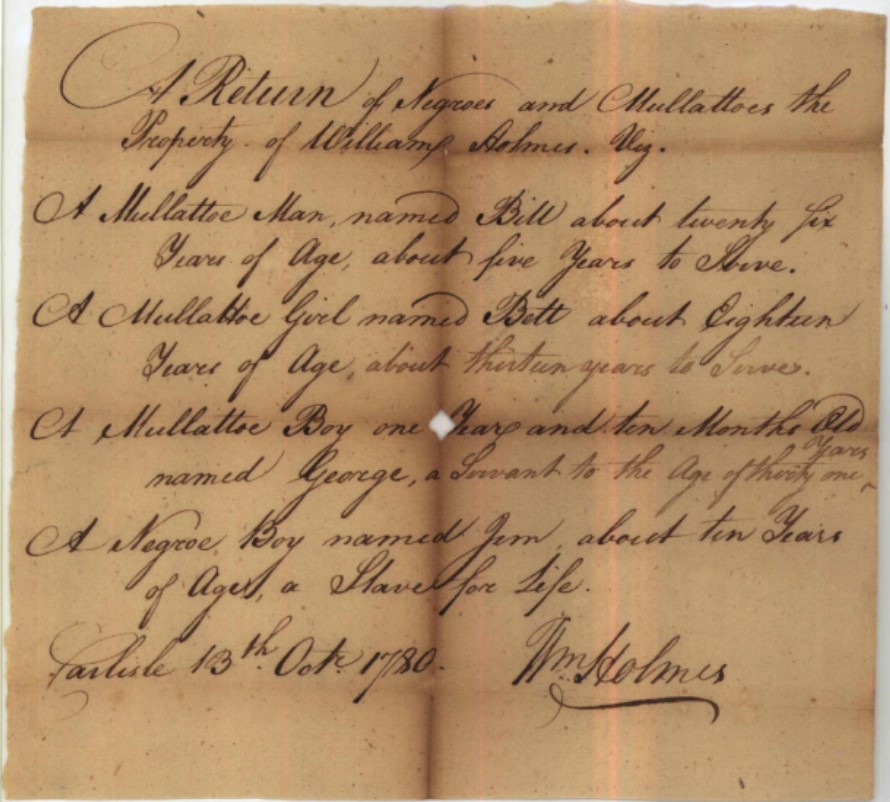 A Return of Negroes and Mullattoes the
Property of William Holmes. Viz.
A Mullattoe Man, named Bill about twenty six
Years of Age, about five Years to Serve.
A Mullattoe Girl named Bett about Eighteen
Years of Age, about thirteen years to Serve.
A Mullattoe Boy one Year and ten Months Old
named George, a Servant to the Age of thirty one Years
A Negroe Boy named Jem, about ten Years
of Age, a Slave for Life.
Carlisle 13th. Octr. 1780.
Wm Holmes